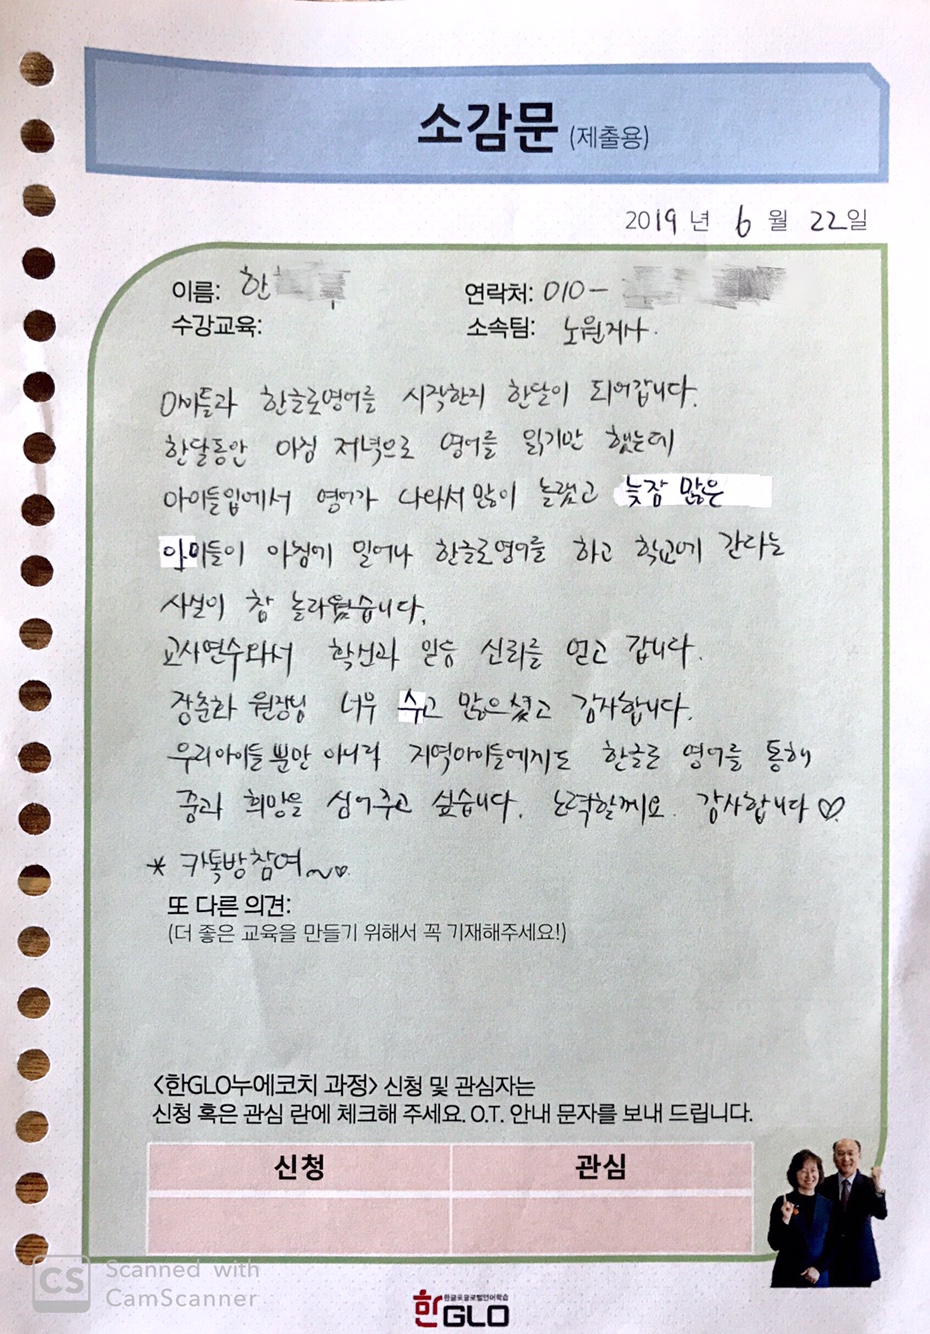 소감문 (제출용)
2019 년 6 월 22일
이름: 한
연락처: 010-
수강교육:
소속팀: 노원지사.
아이들과 한글로영어를 시작한지 한달이 되어갑니다.
한달동안 아침 저녁으로 영어를 읽기만 했는데
아이들입에서 영어가 나와서 많이 놀랬고 늦잠 많은
아이들이 아침에 일어나 한글로영어를 하고 학교에 간다는
사실이 참 놀라웠습니다.
교사연수와서 확신과 믿음 신뢰를 얻고 갑니다.
장춘화 원장님 너무 수고 많으셨고 감사합니다.
우리아이들 뿐만 아니라 지역아이들에게도 한글로 영어를 통해
꿈과 희망을 심어주고 싶습니다. 노력할께요. 감사합니다 ♡.
* 카톡방참여~♡.
또 다른 의견:
(더 좋은 교육을 만들기 위해서 꼭 기재해주세요!)
<한GLO누에코치 과정> 신청 및 관심자는
신청 혹은 관심 란에 체크해 주세요. O.T. 안내 문자를 보내 드립니다.
신청
관심
CS Scanned with
CamScanner
한글로글로벌언어학습
한GLO